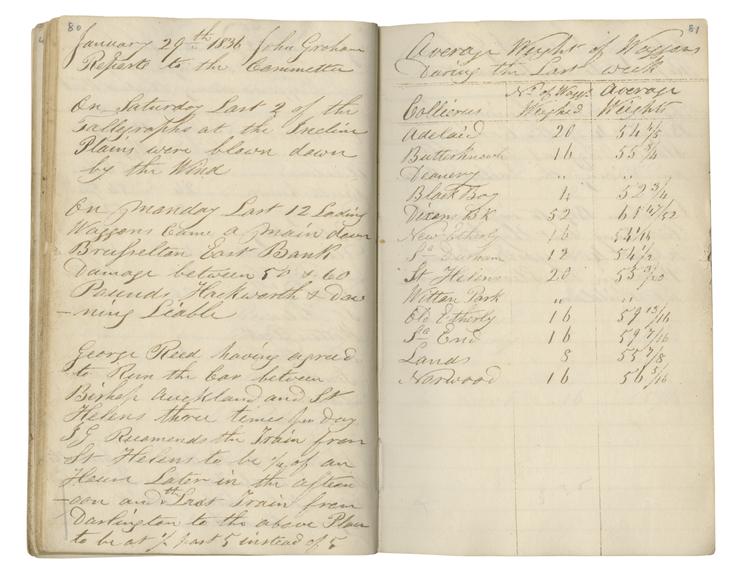 80
January 29th 1836 John Graham
Reports to the Committee
On Saturday Last 2 of the
Tallegraphs at the Incline
Plains were blown down
by the Wind
On Monday Last 12 Lading
Waggons Came a main down
Brusselton East Bank
Damage between 50 & 60
Pounds Hackworth & Dow
-ning Liable
George Reed having agreed
to Run the Car between
Bishop Auckland and St
Helens three times per Day
J G Recomends the Train from
St Helens to be 1/4 of an
Hour Later in the aftern
-oon and the Last Train from
Darlington to the above Place
to be at 1/2 past 5 instead of 5
81
Average Weight of Waggons
During the Last week
Collieries No. of Waggs Weighed Average Weights
Adelaid 20 54 4/5
Butterknowle 16 55 3/4
Deanery " "
Black Boy 4 52 3/4
Dixons Bk 52 61 47/52
New Etherly 16 54 1/16
So. Durham 12 54 1/2
St Helens 20 55 3/20
Witton Park " "
Old Etherly 16 59 13/16
So. End 16 59 7/16
Lands 8 55 7/8
Norwood 16 56 5/16